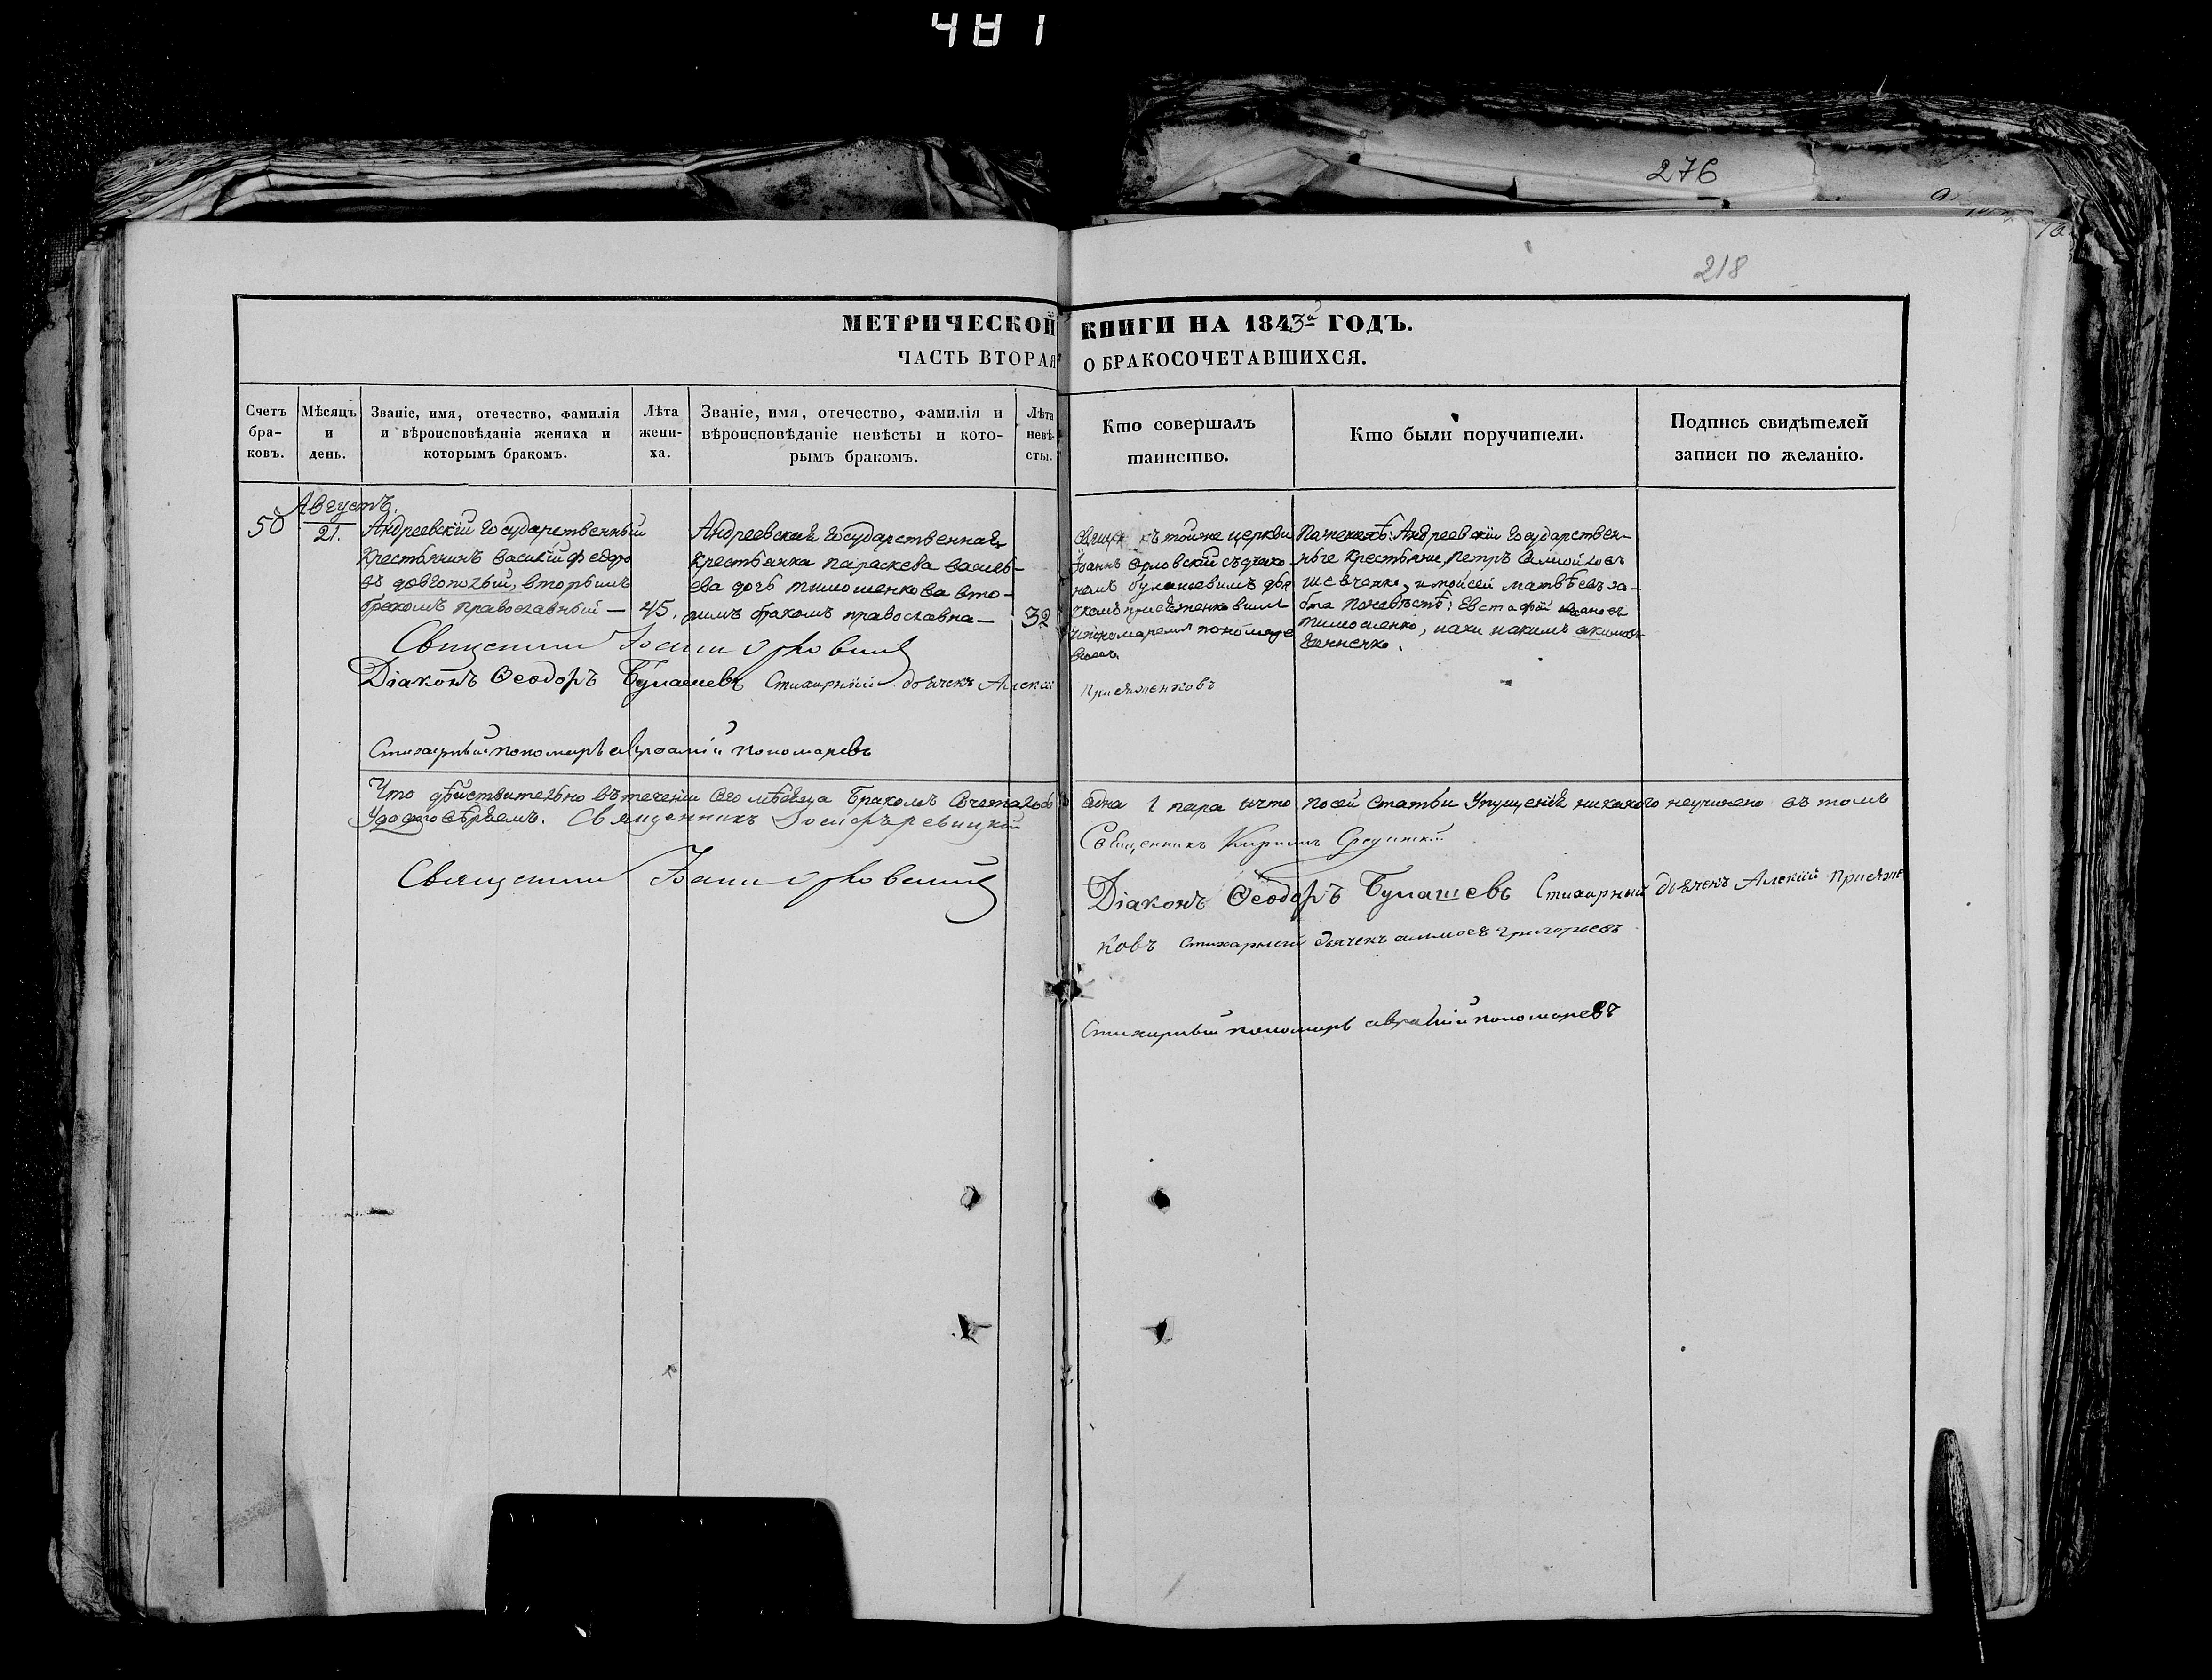 481
276
218
МЕТРИЧЕСКОЙ КНИГИ НА 1843й ГОДЪ.
ЧАСТЬ ВТОРАЯ О БРАКОСОЧЕТАВШИХСЯ.
Счетъ бра- ковъ.
Мѣсяцъ и день.
Званіе, имя, отечество, фамилія и вѣроисповѣданіе жениха и которымъ бракомъ.
Лѣта жени- ха.
Званіе, имя, отечество, фамилія и вѣроисповѣданіе невѣсты и кото- рымъ бракомъ.
Лѣта невѣ- сты.
Кто совершалъ таинство.
Кто были поручители.
Подпись свидѣтелей записи по желанію.
50
Августъ.
21.
Андреевскій Государственный
Крестьянинъ Василій Федо
въ довгополый, вторымъ
бракомъ православный —
45.
Андреевская Государственная
Крестьянка Параскева Василь-
ева дочь тимошенкова вто-
рымъ бракомъ православна —
32
тойже церкви
Іоаннъ Орловскій съ діако
номъ булашевимъ дья
чкомъ присяженковимъ
ипономаремъ пономаре
вымъ.
Поженихѣ: Андреевскіи Государствен-
ные Крестьяне Петръ Самойловъ
шевченко, и мойсей матвѣевъ за-
Поневѣстѣ: Евстафій
тимошенко,
Священникъ Іоаннъ Орловскій
Діаконъ Ѳеодоръ Булашевъ Стихарный дьячекъ Алексій Присяженковъ
Стихарный пономарь пономаревъ
Что дѣйствительно въ теченіи сего мѣсяца Бракомъ Сочеталось одна 1 пара ичто посей Статьи Упущенія никакого неучинено въ томъ
Удостовѣряемъ. Священникъ
Священникъ Кириллъ
Священникъ Іоаннъ Орловскій
Діаконъ Ѳеодоръ Булашевъ Стихарный дьячекъ Алексій Присяжен
ковъ Стихарный дьячекъ Григорьевъ
Стихарный пономарь пономаревъ